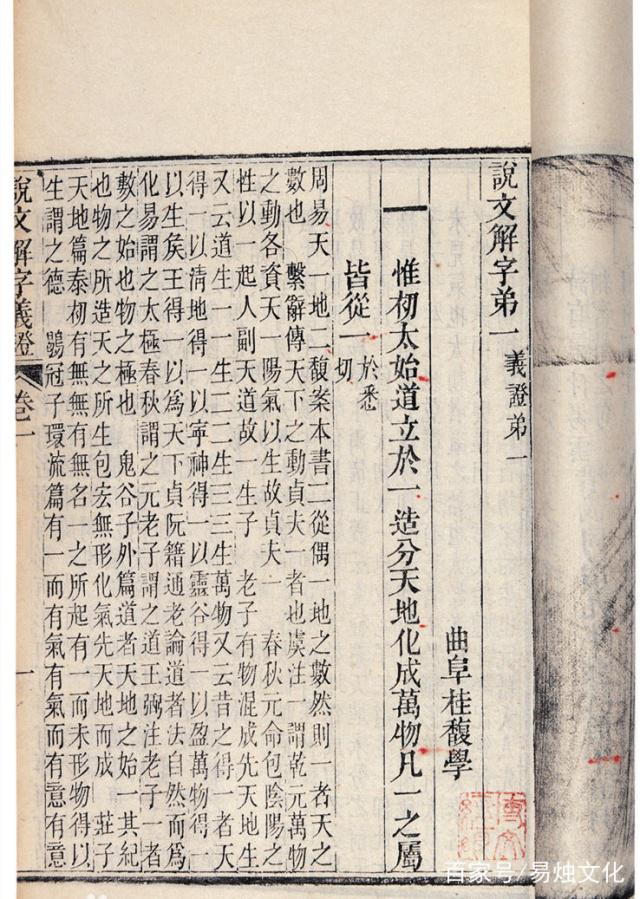 說文解字弟一 義證弟一
曲阜桂馥學
一 惟初太始道立於一造分天地化成萬物凡一之屬
皆從一 於悉切
周易天一地二馥案本書二從偶一地之數然則一者天之
數也 繫辭傳天下之動貞夫一者也虞注一謂乾元萬物
之動各資天一陽氣以生故貞夫一 春秋元命包陰陽之
性以一起人副天道故一生子 老子有物混成先天地生
又云道生一一生二二生三三生萬物又云昔之得一者天
得一以清地得一以寧神得一以靈谷得一以盈萬物得一
以生矦王得一以爲天下貞阮籍通老論道者法自然而爲
化易謂之太極春秋謂之元老子謂之道王弼注老子一者
數之始也物之極也 鬼谷子外篇道者天地之始一其紀
也物之所造天之所生包宏無形化氣先天地而成 莊子
天地篇泰初有無無有無名一之所起有一而未形物得以
生謂之德 鶡冠子環流篇有一而有氣有氣而有意有意
說文解字義證 卷一 一
百家号/易烛文化